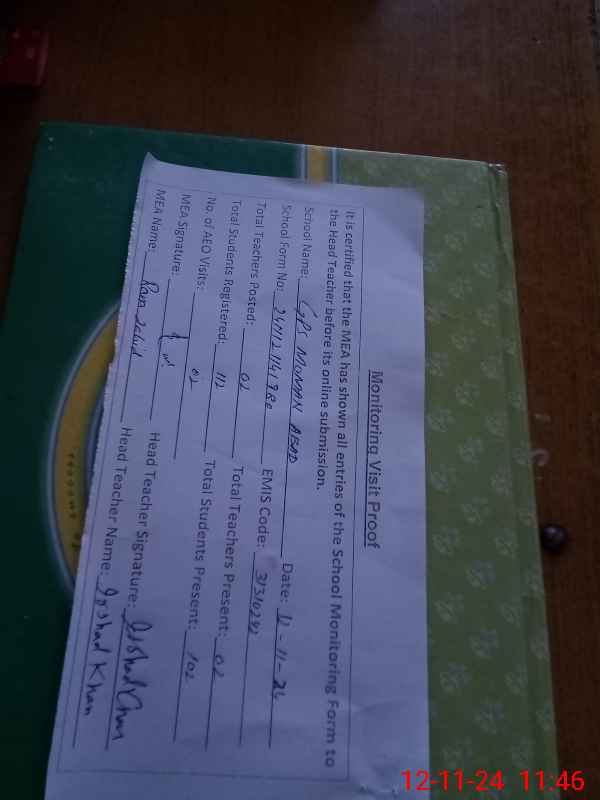 Monitoring Visit Proof
It is certified that the MEA has shown all entries of the School Monitoring Form to
the Head Teacher before its online submission.
School Name: GPS MOMAN ABAD Date: 12-11-24
School Form No: EMIS Code: 31310292
Total Teachers Posted: 02 Total Teachers Present: 02
Total Students Registered: 112 Total Students Present: 102
No. of AEO Visits: 02
MEA Signature: Head Teacher Signature: Irshad Khan
MEA Name: Head Teacher Name: Irshad Khan
12-11-24 11:46